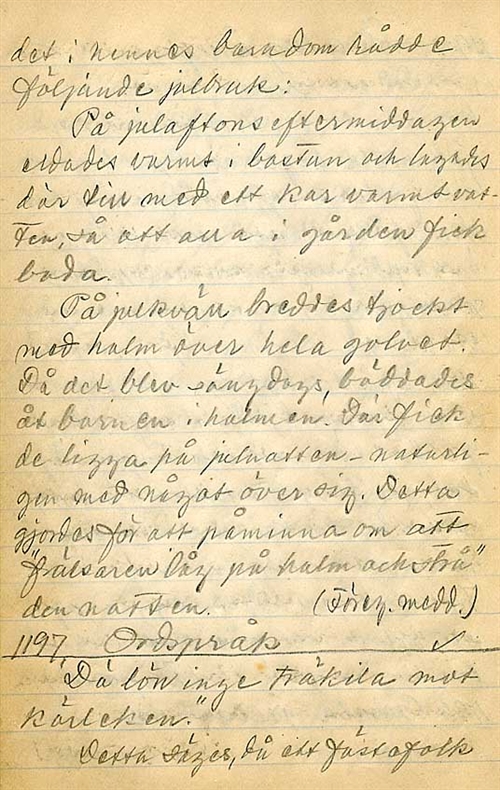 det i hennes barndom rådde
följande julbruk:
På julaftonseftermiddagen
eldades varmt i bastun och lagades
där till med ett kar varmt vat-
ten, så att alla i gården fick
bada.
På julkväll breddes tjockt
med halm över hela golvet.
Då det blev sängdags, bäddades
åt barnen i halmen. Där fick
de ligga på julnatten - naturli-
gen med något över sig. Detta
gjordes för att påminna om att
"frälsaren låg på halm och strå"
den natten. (Föreg. medd.)
1197 Ordspråk ✓
"Dä lön inge träkila mot
kärleken."
Detta säges, då ett fästefolk